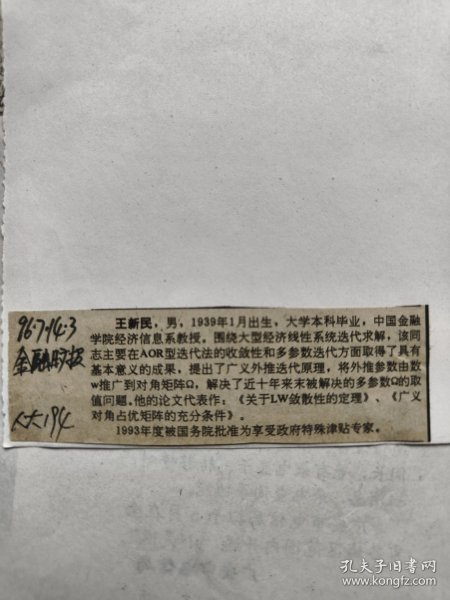 96.7.14.3
金融时报
人大194
王新民，男，1939年1月出生，大学本科毕业，中国金融
学院经济信息系教授。围绕大型经济线性系统迭代求解，该同
志主要在AOR型迭代法的收敛性和多参数迭代方面取得了具有
基本意义的成果，提出了广义外推迭代原理，将外推参数由数
w推广到对角矩阵Ω，解决了近十年来未被解决的多参数Ω的取
值问题。他的论文代表作：《关于LW敛散性的定理》、《广义
对角占优矩阵的充分条件》。
1993年度被国务院批准为享受政府特殊津贴专家。
孔夫子旧书网
www.kongfz.com